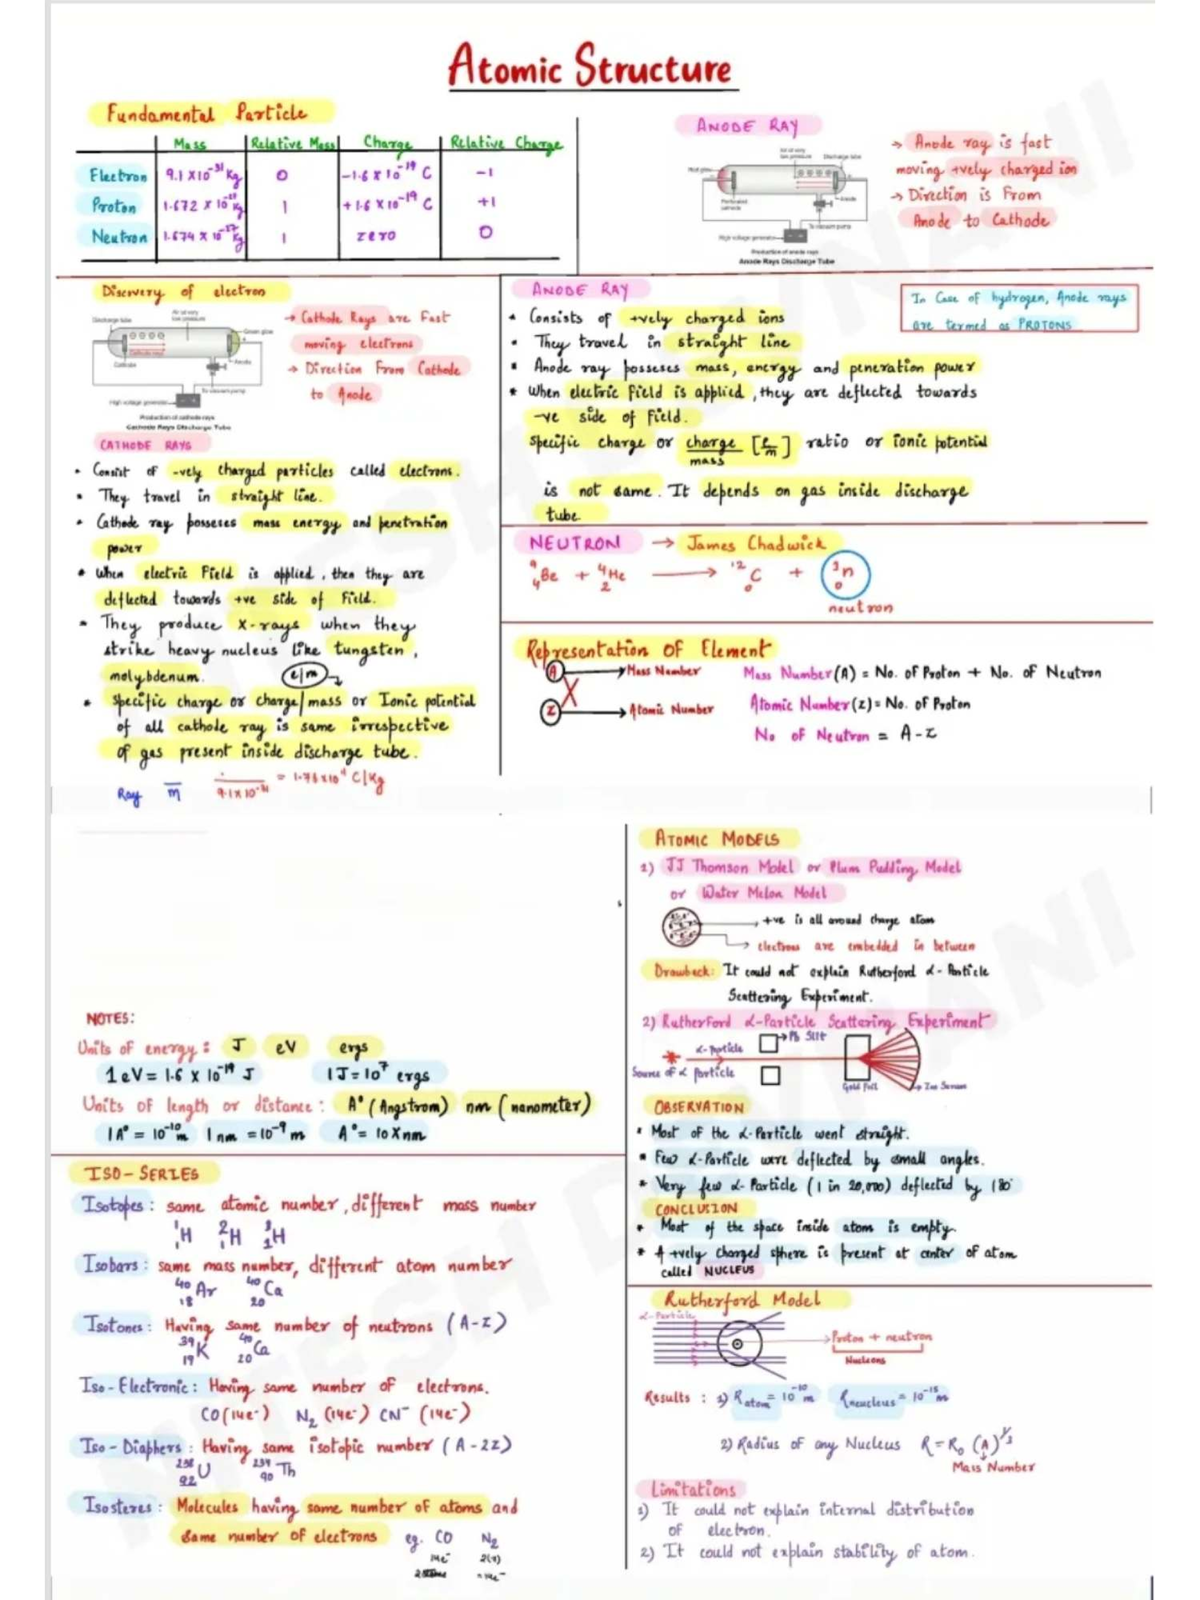 Atomic Structure
Fundamental Particle
Mass Relative Mass Charge Relative Charge
Electron 9.1 X 10⁻³¹ Kg 0 -1.6 X 10⁻¹⁹ C -1
Proton 1.672 X 10⁻²⁷ Kg 1 +1.6 X 10⁻¹⁹ C +1
Neutron 1.674 X 10⁻²⁷ Kg 1 zero 0
ANODE RAY
Discharge tube
Perforated cathode
Anode
To vacuum pump
High voltage generator
Production of anode rays
Anode Rays Discharge Tube
→ Anode ray is fast
moving +vely charged ion
→ Direction is From
Anode to Cathode
Discovery of electron
Discharge tube
Air at very low pressure
Green glow
Cathode rays
Cathode
Anode
To vacuum pump
High voltage generator
Production of cathode rays
Cathode Rays Discharge Tube
→ Cathode Rays are Fast
moving electrons
→ Direction From Cathode
to Anode
CATHODE RAYS
• Consist of -vely charged particles called electrons.
• They travel in straight line.
• Cathode ray posseses mass energy and penetration
power
• When electric Field is applied, then they are
deflected towards +ve side of Field.
• They produce X-rays when they
strike heavy nucleus like tungsten,
molybdenum.
e/m
• Specific charge or charge/mass or Ionic potential
of all cathode ray is same irrespective
of gas present inside discharge tube.
Ray m 9.1 X 10⁻³¹ = 1.76 X 10¹¹ C/Kg
ANODE RAY
In Case of hydrogen, Anode rays
are termed as PROTONS
• Consists of +vely charged ions
• They travel in straight line
• Anode ray posseses mass, energy and peneration power
• When electric field is applied, they are deflected towards
-ve side of Field.
Specific charge or charge/mass [e/m] ratio or ionic potential
is not same. It depends on gas inside discharge
tube
NEUTRON → James Chadwick
⁹₄Be + ⁴₂He → ¹²C + ¹₀n
neutron
Representation of Element
A → Mass Number
Z → Atomic Number
Mass Number (A) = No. of Proton + No. of Neutron
Atomic Number (Z) = No. of Proton
No of Neutron = A-Z
NOTES:
Units of energy: J eV ergs
1 eV = 1.6 X 10⁻¹⁹ J 1J = 10⁷ ergs
Units of length or distance: A° (Angstrom) nm (nanometer)
1A° = 10⁻¹⁰ m 1nm = 10⁻⁹ m A° = 10 X nm
ISO-SERIES
Isotopes: same atomic number, different mass number
¹₁H ²₁H ³₁H
Isobars: same mass number, different atom number
⁴⁰₁₈Ar ⁴⁰₂₀Ca
Isotones: Having same number of neutrons (A-Z)
³⁹₁₉K ⁴⁰₂₀Ca
Iso-Electronic: Having same number of electrons.
CO(14e⁻) N₂ (14e⁻) CN⁻ (14e⁻)
Iso-Diaphers: Having same isotopic number (A-2Z)
²³⁸₉₂U ²³⁴₉₀Th
Isosteres: Molecules having same number of atoms and
same number of electrons eg. CO N₂
14e⁻ 2(7)
=14e⁻
ATOMIC MODELS
1) JJ Thomson Model or Plum Pudding Model
or Water Melon Model
→ +ve is all around charge atom
→ electrons are embedded in between
Drawback: It could not explain Rutherford α-Particle
Scattering Experiment.
2) Rutherford α-Particle Scattering Experiment
α-Particle
Pb Slit
Source of α particle
Gold Foil
Zns Screen
OBSERVATION
• Most of the α-Particle went straight.
• Few α-Particle were deflected by small angles.
• Very few α-Particle (1 in 20,000) deflected by 180°
CONCLUSION
• Most of the space inside atom is empty.
• A +vely charged sphere is present at center of atom
called NUCLEUS
Rutherford Model
α-Particle
→ Proton + neutron
Nucleons
Results: 1) R atom = 10⁻¹⁰ m R nucleus = 10⁻¹⁵ m
2) Radius of any Nucleus R = R₀ (A)^1/3
Mass Number
Limitations
1) It could not explain internal distribution
of electron.
2) It could not explain stability of atom.